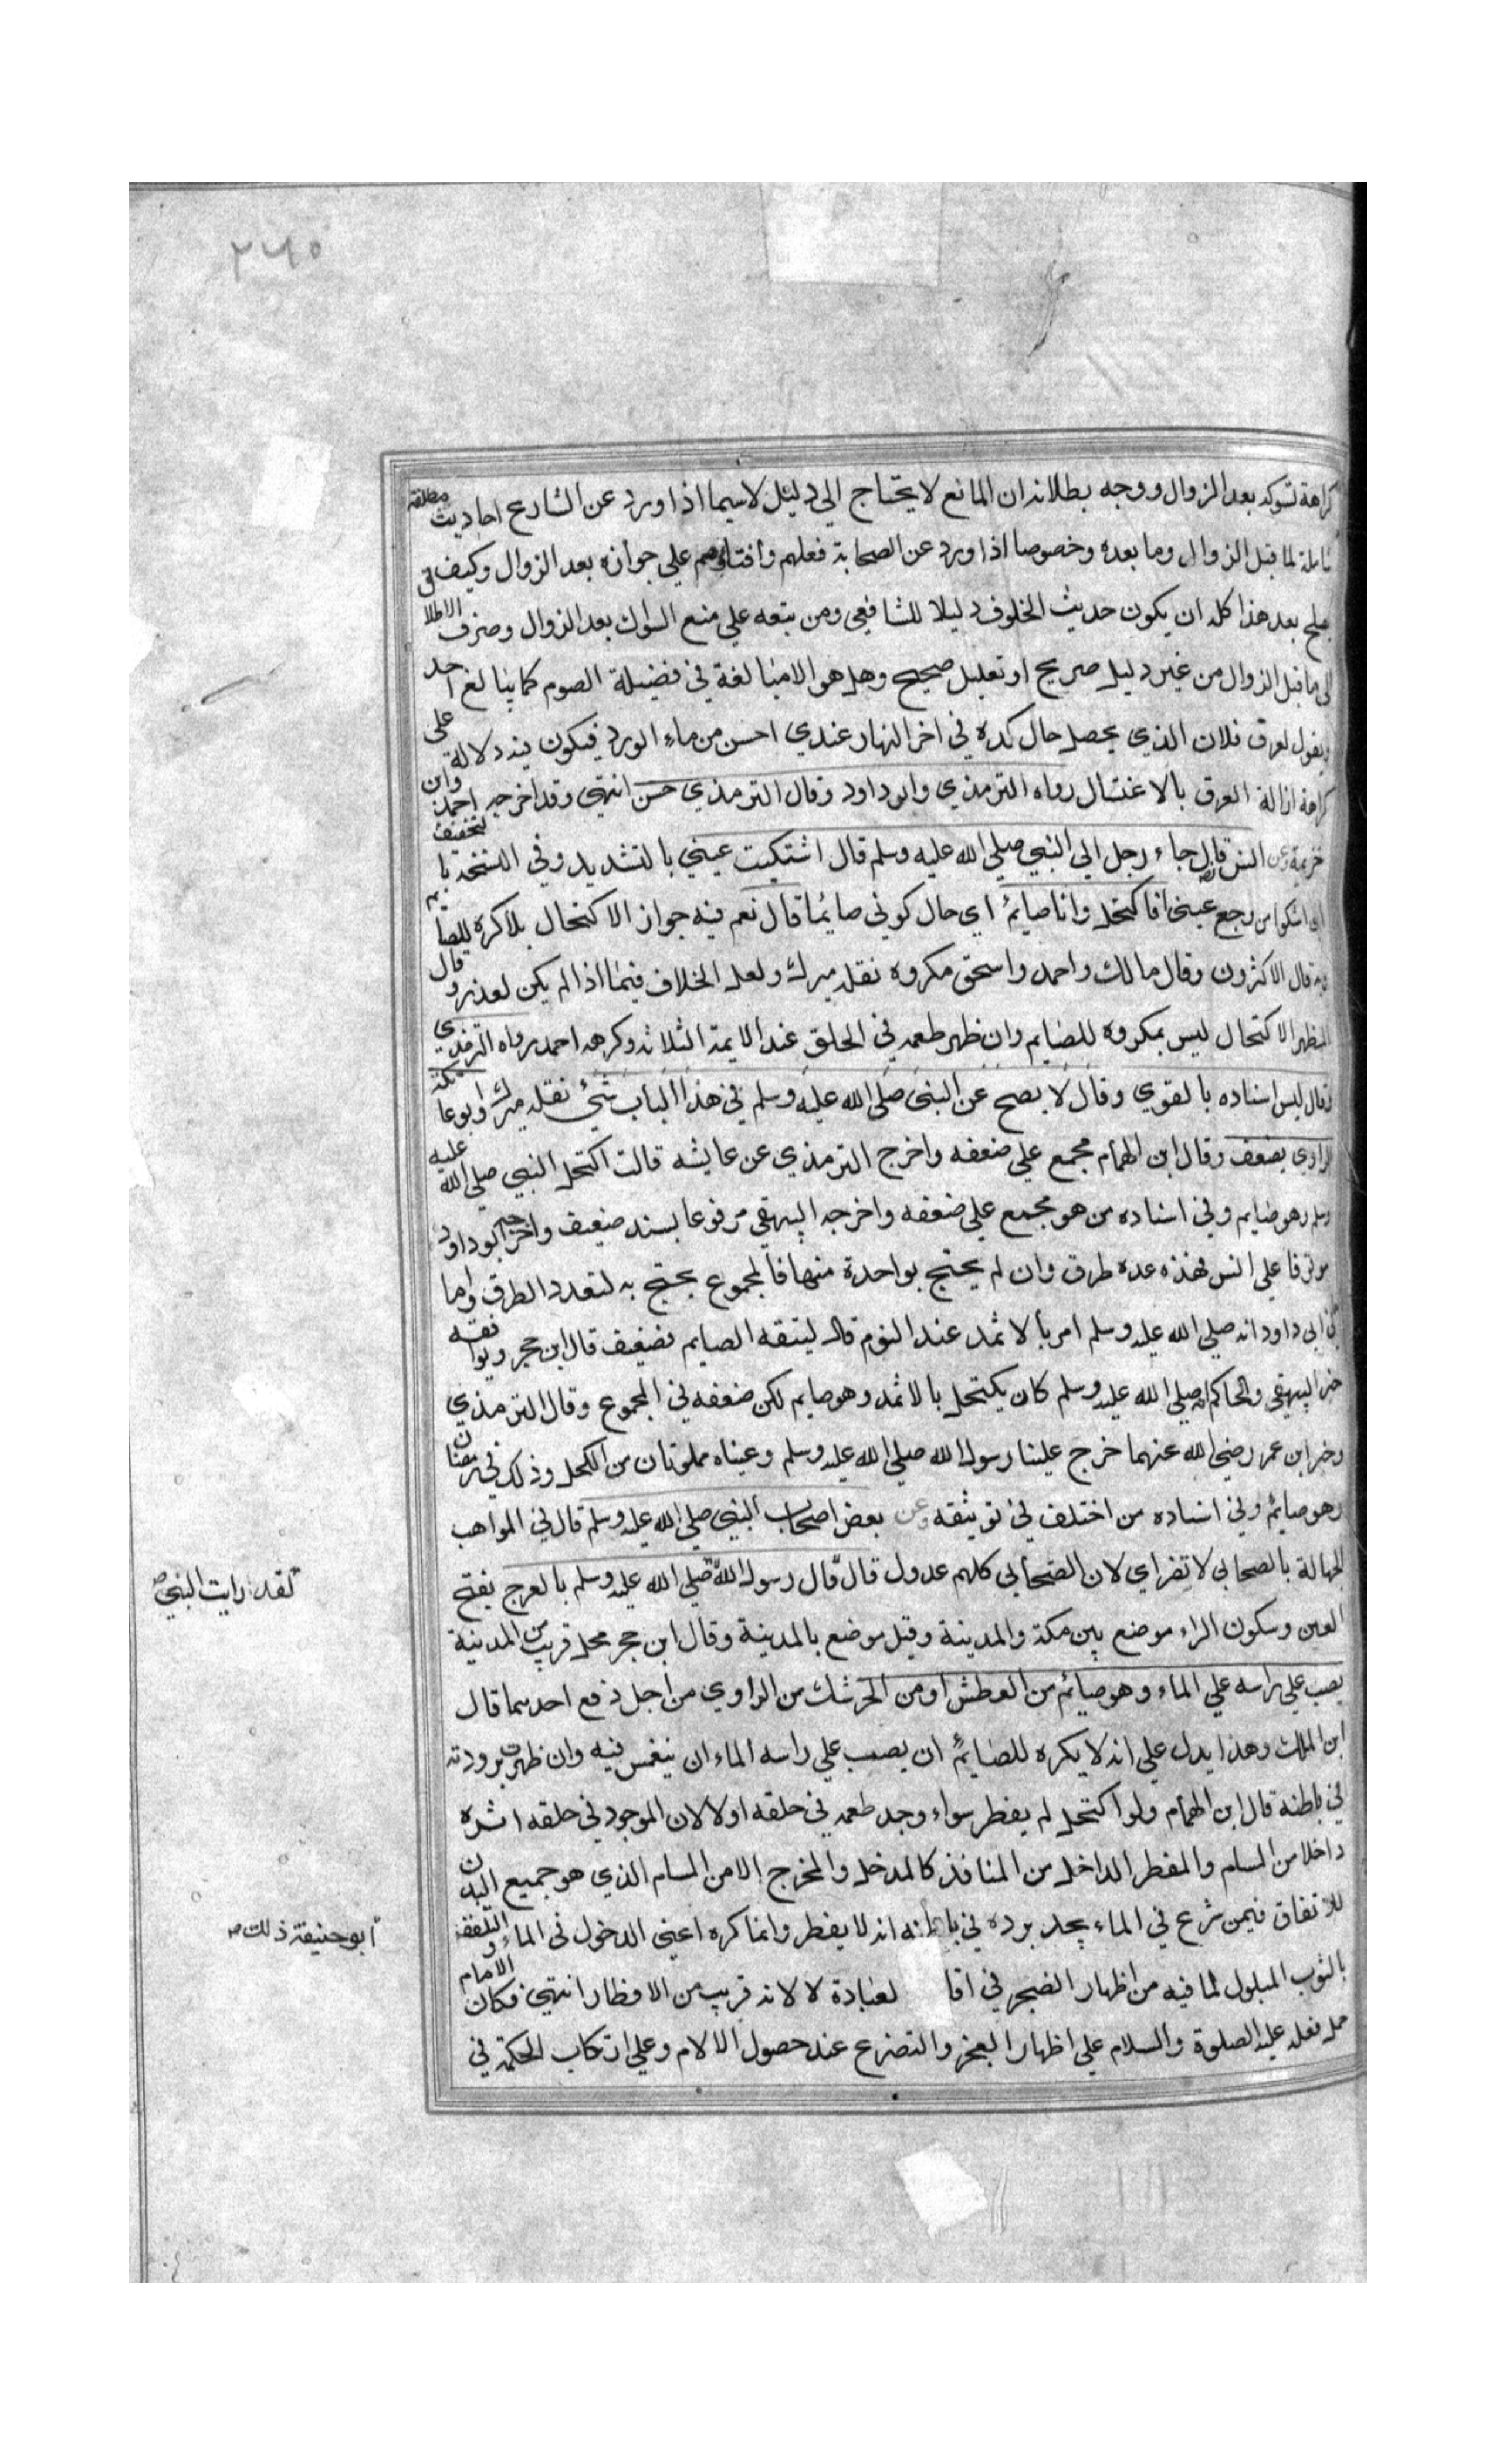 ٢٦٥
كراهة تسوكه بعد الزوال ووجه بطلانه ان المانع لا يحتاج الي دليل لاسيما اذا ورد عن الشارع احاديث مطلقة
شاملة لما قبل الزوال وما بعده وخصوصا اذا ورد عن الصحابة فعلهم وافتاؤهم علي جوازه بعد الزوال وكيف
يصلح بعد هذا كله ان يكون حديث الخلوف دليلا للشافعي ومن يتبعه علي منع السواك بعد الزوال وصرف الاطلاق
الي ما قبل الزوال من غير دليل صريح او تعليل صحيح وهل هو الا مبالغة في فضيلة الصوم كما يبالغ احد
ويقول لعرق فلان الذي يحصل حال كده في اخر النهار عندي احسن من ماء الورد فيكون فيه دلالة علي
كراهة ازالة العرق بالاغتسال رواه الترمذي وابو داود وقال الترمذي حسن انتهي وقد اخرجه احمد وابن
خزيمة وعن انس قال جاء رجل الي النبي صلي الله عليه وسلم قال اشتكيت عيني بالتشديد وفي النسخة بالتخفيف
اي اشكوا من وجع عيني افاكتحل وانا صايم اي حال كوني صائما قال نعم فيه جواز الاكتحال بلا كره للصايم
وبه قال الاكثرون وقال مالك واحمد واسحق مكروه نقله ميرك ولعل الخلاف فيما اذا لم يكن لعذر وقال
المظهر الاكتحال ليس بمكروه للصايم وان ظهر طعمه في الحلق عند الايمة الثلاثة وكرهه احمد رواه الترمذي
وقال ليس اسناده بالقوي وقال لا يصح عن النبي صلي الله عليه وسلم في هذا الباب شئ نقله ميرك وابو عاتكة
الراوي يضعف وقال ابن الهمام مجمع علي ضعفه واخرج الترمذي عن عايشه قالت اكتحل النبي صلي الله عليه
وسلم وهو صايم وفي اسناده من هو مجمع علي ضعفه واخرجه البيهقي مرفوعا بسند ضعيف واخرجه ابو داود
موقوفا علي انس فهذه عدة طرق وان لم يحتج بواحدة منها فالمجموع يحتج به لتعدد الطرق واما
في ابي داود انه صلي الله عليه وسلم امر بالاثمد عند النوم قال ليتقه الصايم فضعيف قال ابن حجر ويوافقه
خبر البيهقي والحاكم انه صلي الله عليه وسلم كان يكتحل بالاثمد وهو صايم لكن ضعفه في المجموع وقال الترمذي
وخبر ابن عمر رضي الله عنهما خرج علينا رسول الله صلي الله عليه وسلم وعيناه مملوتان من الكحل وذلك في رمضان
وهو صائم وفي اسناده من اختلف في توثيقه وعن بعض اصحاب النبي صلي الله عليه وسلم قال في المواهب
الجهالة بالصحابي لا تضر اي لان الصحابي كلهم عدول قال قال رسول الله صلي الله عليه وسلم بالعرج بفتح
لقد رايت النبي ص
العين وسكون الراء موضع بين مكة والمدينة وقيل موضع بالمدينة وقال ابن حجر محل قريب من المدينة
يصب علي راسه علي الماء وهو صائم من العطش او من الحر شك من الراوي من اجل دفع احدهما قال
ابن الملك وهذا يدل علي انه لا يكره للصايم ان يصب علي راسه الماء ان ينغمس فيه وان ظهرت برودته
في باطنه قال ابن الهمام ولو اكتحل لم يفطر سواء وجد طعمه في حلقه او لا لان الموجود في حلقه اثره
داخلا من المسام والمفطر الداخل من المنافذ كالمدخل والمخرج الا من المسام الذي هو جميع البدن
للاتفاق فيمن شرع في الماء يجد برده في باطنه انه لا يفطر وانما كره اعني الدخول في الماء والتلفف
ابو حنيفة ذلك ص
بالثوب المبلول لما فيه من اظهار الضجر في اقا لعبادة لا لانه قريب من الافطار انتهي فكان الامام
حمل فعله عليه الصلوة والسلام علي اظهار العجز والتضرع عند حصول الالام وعلي ارتكاب الحكمة في